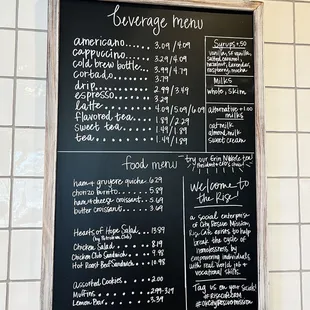 beverage menu
americano..... 3.09/4.09
cappuccino..... 3.29/4.09
cold brew bottle.. 3.99/4.79
cortado...... 3.79
drip....... 2.99/3.49
espresso..... 3.29
latte....... 4.09/5.09/6.09
flavored tea.... 1.89/2.29
sweet tea...... 1.49/1.89
tea......... 1.49/1.89
Syrups +.50
vanilla, sf vanilla,
salted caramel,
hazelnut, lavender,
raspberry, mocha
Milks
whole, skim
alternative +1.00
milks
oatmilk
almond milk
sweet cream
try our Erin Nibble tea!
food menu
ham + gruyere quiche.. 6.29
chorizo burrito...... 5.89
ham + cheese croissant.. 5.69
butter croissant..... 3.69
Hearts of Hope Salad... 13.89
Chicken Salad....... 8.19
Chicken Club Sandwich.. 9.98
Hot Roast Beef Sandwich.. 10.98
Assorted Cookies.... 2.00
Muffins........ 2.99
Lemon Bar....... 3.39
Welcome to
the Rise!
a social enterprise
of City Rescue Mission,
exists to help
break the cycle of
homelessness by
empowering individuals
with real world job +
vocational skills.
Tag us on your socials!